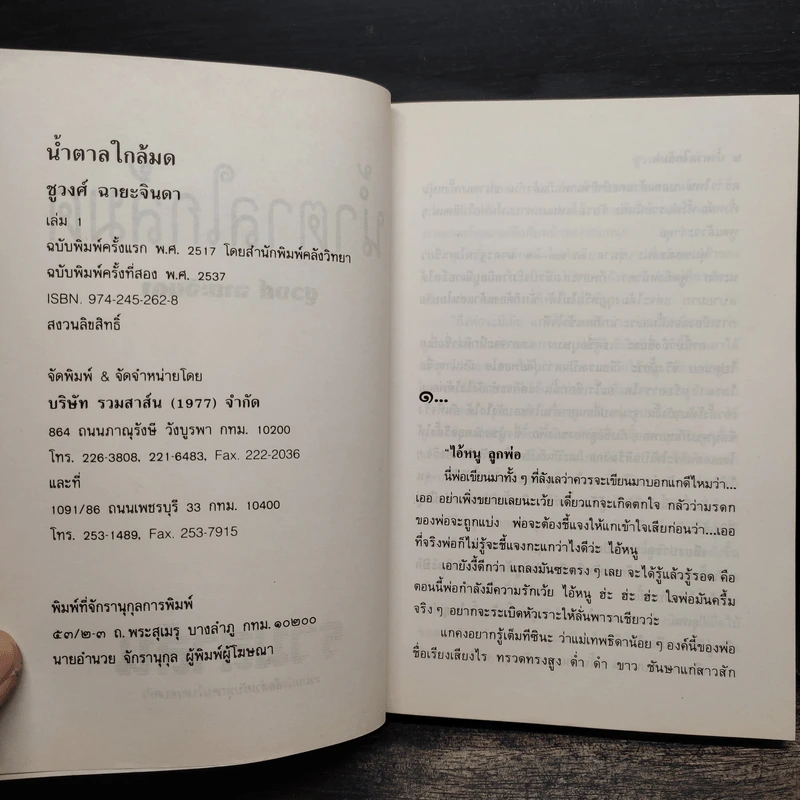 น้ำตาลใกล้มด
ชูวงศ์ ฉายะจินดา
เล่ม 1
ฉบับพิมพ์ครั้งแรก พ.ศ. 2517 โดยสำนักพิมพ์คลังวิทยา
ฉบับพิมพ์ครั้งที่สอง พ.ศ. 2537
ISBN. 974-245-262-8
สงวนลิขสิทธิ์
จัดพิมพ์ & จัดจำหน่ายโดย
บริษัท รวมสาส์น (1977) จำกัด
864 ถนนภาณุรังษี วังบูรพา กทม. 10200
โทร. 226-3808, 221-6483, Fax. 222-2036
และที่
1091/86 ถนนเพชรบุรี 33 กทม. 10400
โทร. 253-1489, Fax. 253-7915
พิมพ์ที่จักรานุกุลการพิมพ์
๕๓/๒-๓ ถ. พระสุเมรุ บางลำภู กทม. ๑๐๒๐๐
นายอำนวย จักรานุกุล ผู้พิมพ์ผู้โฆษณา
๑...
"ไอ้หนู ลูกพ่อ
นี่พ่อเขียนมาทั้ง ๆ ที่ลังเลว่าควรจะเขียนมาบอกแกดีไหมว่า...
เออ อย่าเพิ่งขยายเลยนะเว้ย เดี๋ยวแกจะเกิดตกใจ กลัวว่ามรดก
ของพ่อจะถูกแบ่ง พ่อจะต้องชี้แจงให้แกเข้าใจเสียก่อนว่า...เออ
ที่จริงพ่อก็ไม่รู้จะชี้แจงกะแกว่าไงดีว่ะ ไอ้หนู
เอายังงี้ดีกว่า แถลงมันซะตรง ๆ เลย จะได้รู้แล้วรู้รอด คือ
ตอนนี้พ่อกำลังมีความรักเว้ย ไอ้หนู ฮ่ะ ฮ่ะ ฮ่ะ ใจพ่อมันครึ้ม
จริง ๆ อยากจะระเบิดหัวเราะให้ลั่นพาราเชียวว่ะ
แกคงอยากรู้เต็มทีซินะ ว่าแม่เทพธิดาน้อย ๆ องค์นี้ของพ่อ
ชื่อเรียงเสียงไร ทรวดทรงสูง ต่ำ ดำ ขาว ชันษาแก่สาวสัก